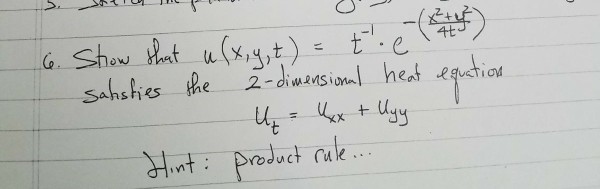 6. Show that u(x,y,t) = t⁻¹ · e^-((x²+y²)/4t)
satisfies the 2-dimensional heat equation
U_t = U_xx + U_yy
Hint: product rule...